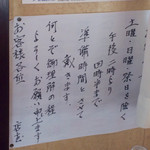 土曜、日曜、祭日を除く
午後二時より
四時半まで
準備時間とさせて
戴きます
何とぞ御理解の程
よろしくお願い申上ます
お客様各位
店主